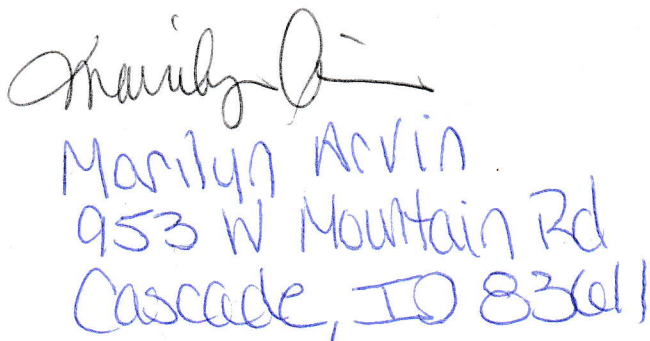 Marilyn Arvin
Marilyn Arvin
953 W Mountain Rd
Cascade, ID 83611